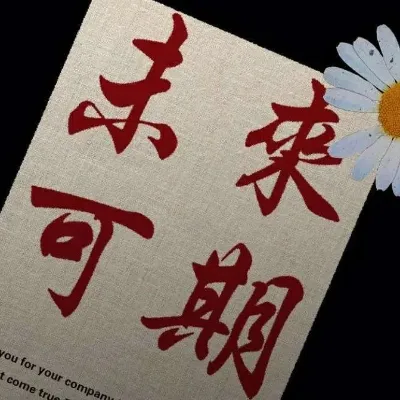 未来
可期
you for your company
t come true